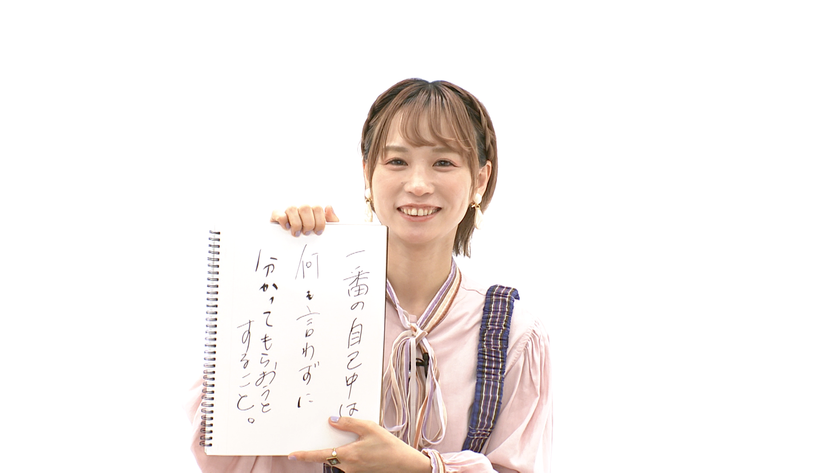 一番の自己中は
何も言わずに
分かってもらおうと
すること。